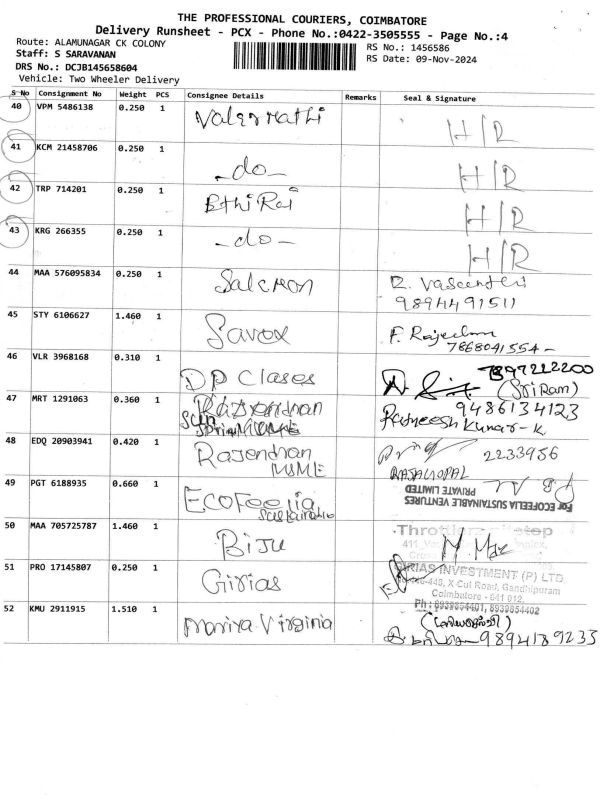 THE PROFESSIONAL COURIERS, COIMBATORE
Delivery Runsheet - PCX - Phone No.:0422-3505555 - Page No.:4
Route: ALAMUNAGAR CK COLONY
RS No.: 1456586
Staff: S SARAVANAN
RS Date: 09-Nov-2024
DRS No.: DCJB145658604
Vehicle: Two Wheeler Delivery
S No Consignment No Weight PCS Consignee Details Remarks Seal & Signature
40 VPM 5486138 0.250 1 H/R
41 KCM 21458706 0.250 1 -do- H/R
42 TRP 714201 0.250 1 EthiRaj H/R
43 KRG 266355 0.250 1 -do- H/R
44 MAA 576095834 0.250 1 Salcmon
9894491511
45 STY 6106627 1.460 1 Savox
7868041554-
46 VLR 3968168 0.310 1 DP Clases 7397222200
(SriRam)
47 MRT 1291063 0.360 1 9486134123
Ratneesh Kumar-K
48 EDQ 20903941 0.420 1 Rajendran 2233956
MIME RAJAGOPAL
49 PGT 6188935 0.660 1 EcoFeelia
For ECOFEELIA SUSTAINABLE VENTURES
PRIVATE LIMITED
50 MAA 705725787 1.460 1 Biju
51 PRO 17145807 0.250 1 Girias
GIRIAS INVESTMENT (P) LTD
X-Cut Road, Gandhipuram
Coimbatore - 641 012.
Ph: 8939854401, 8939854402
52 KMU 2911915 1.510 1 Mariya Virginia
9894189233